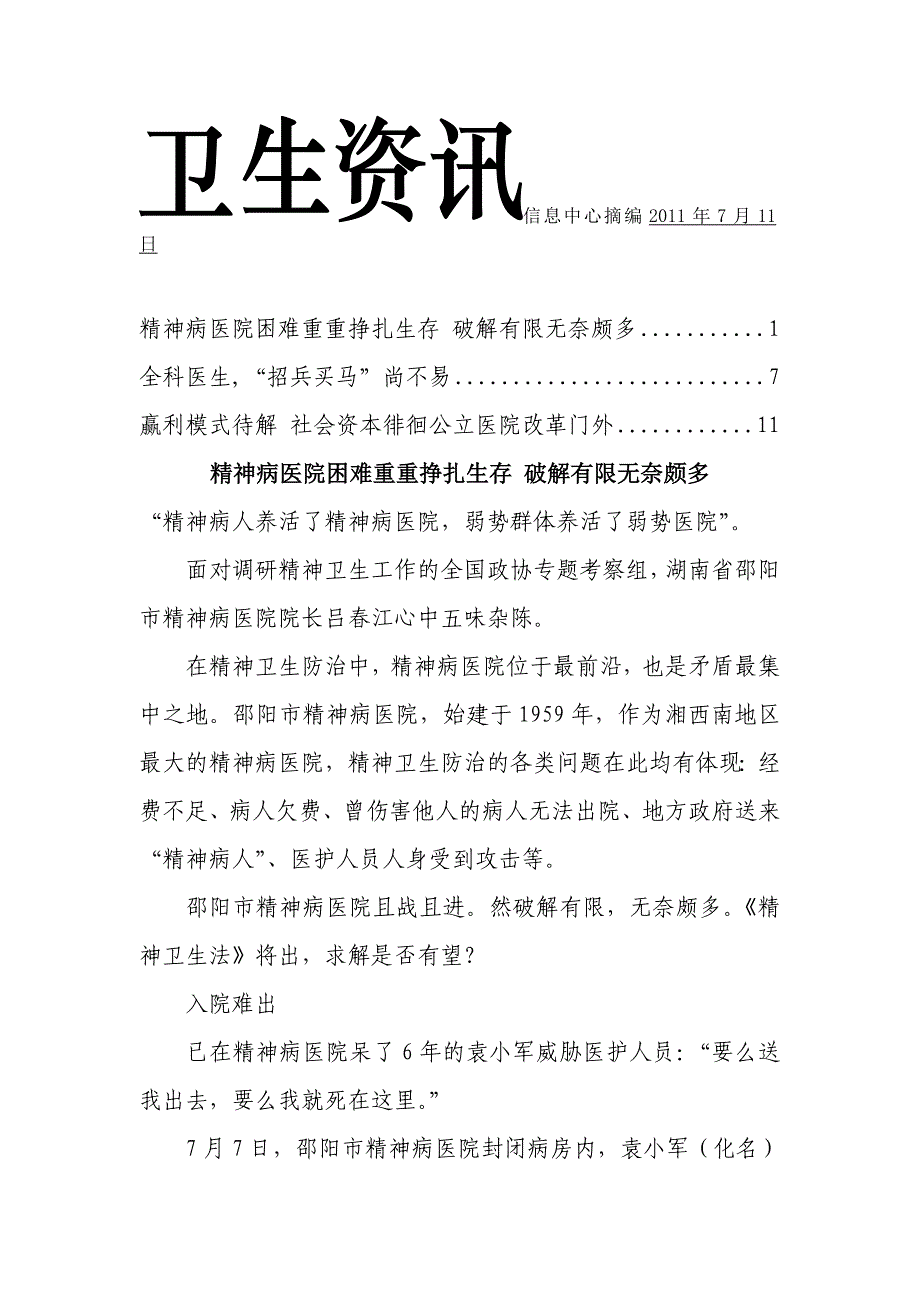 卫生资讯信息中心摘编 2011 年 7 月 11
日
精神病医院困难重重挣扎生存 破解有限无奈颇多...........1
全科医生，“招兵买马”尚不易...........................7
赢利模式待解 社会资本徘徊公立医院改革门外............11
精神病医院困难重重挣扎生存 破解有限无奈颇多
“精神病人养活了精神病医院，弱势群体养活了弱势医院”。
面对调研精神卫生工作的全国政协专题考察组，湖南省邵阳
市精神病医院院长吕春江心中五味杂陈。
在精神卫生防治中，精神病医院位于最前沿，也是矛盾最集
中之地。邵阳市精神病医院，始建于 1959 年，作为湘西南地区
最大的精神病医院，精神卫生防治的各类问题在此均有体现：经
费不足、病人欠费、曾伤害他人的病人无法出院、地方政府送来
“精神病人”、医护人员人身受到攻击等。
邵阳市精神病医院且战且进。然破解有限，无奈颇多。《精
神卫生法》将出，求解是否有望？
入院难出
已在精神病医院呆了 6 年的袁小军威胁医护人员：“要么送
我出去，要么我就死在这里。”
7 月 7 日，邵阳市精神病医院封闭病房内，袁小军（化名）